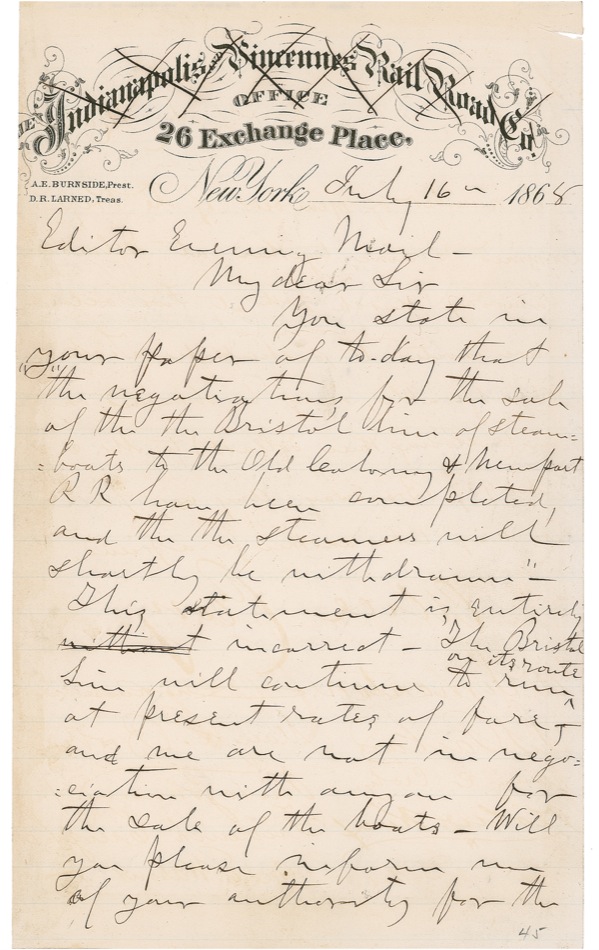 THE Indianapolis and Vincennes Rail Road Co.
OFFICE
26 Exchange Place.
A.E. BURNSIDE, Prest.
D.R. LARNED, Treas.
New York July 16th 1868
Editor Evening Mail -
My dear Sir
You state in
your paper of to-day that
"the negotiations for the sale
of the the Bristol line of steam=
=boats to the Old Colony & Newport
R R have been completed,
and the the steamers will
shortly be withdrawn" -
This statement is entirely
without incorrect - The Bristol
on its route
Line will continue to run ^
at present rates of fare -
and we are not in nego=
=ciation with anyone for
the sale of the boats - Will
you please inform me
of your authority for the
45